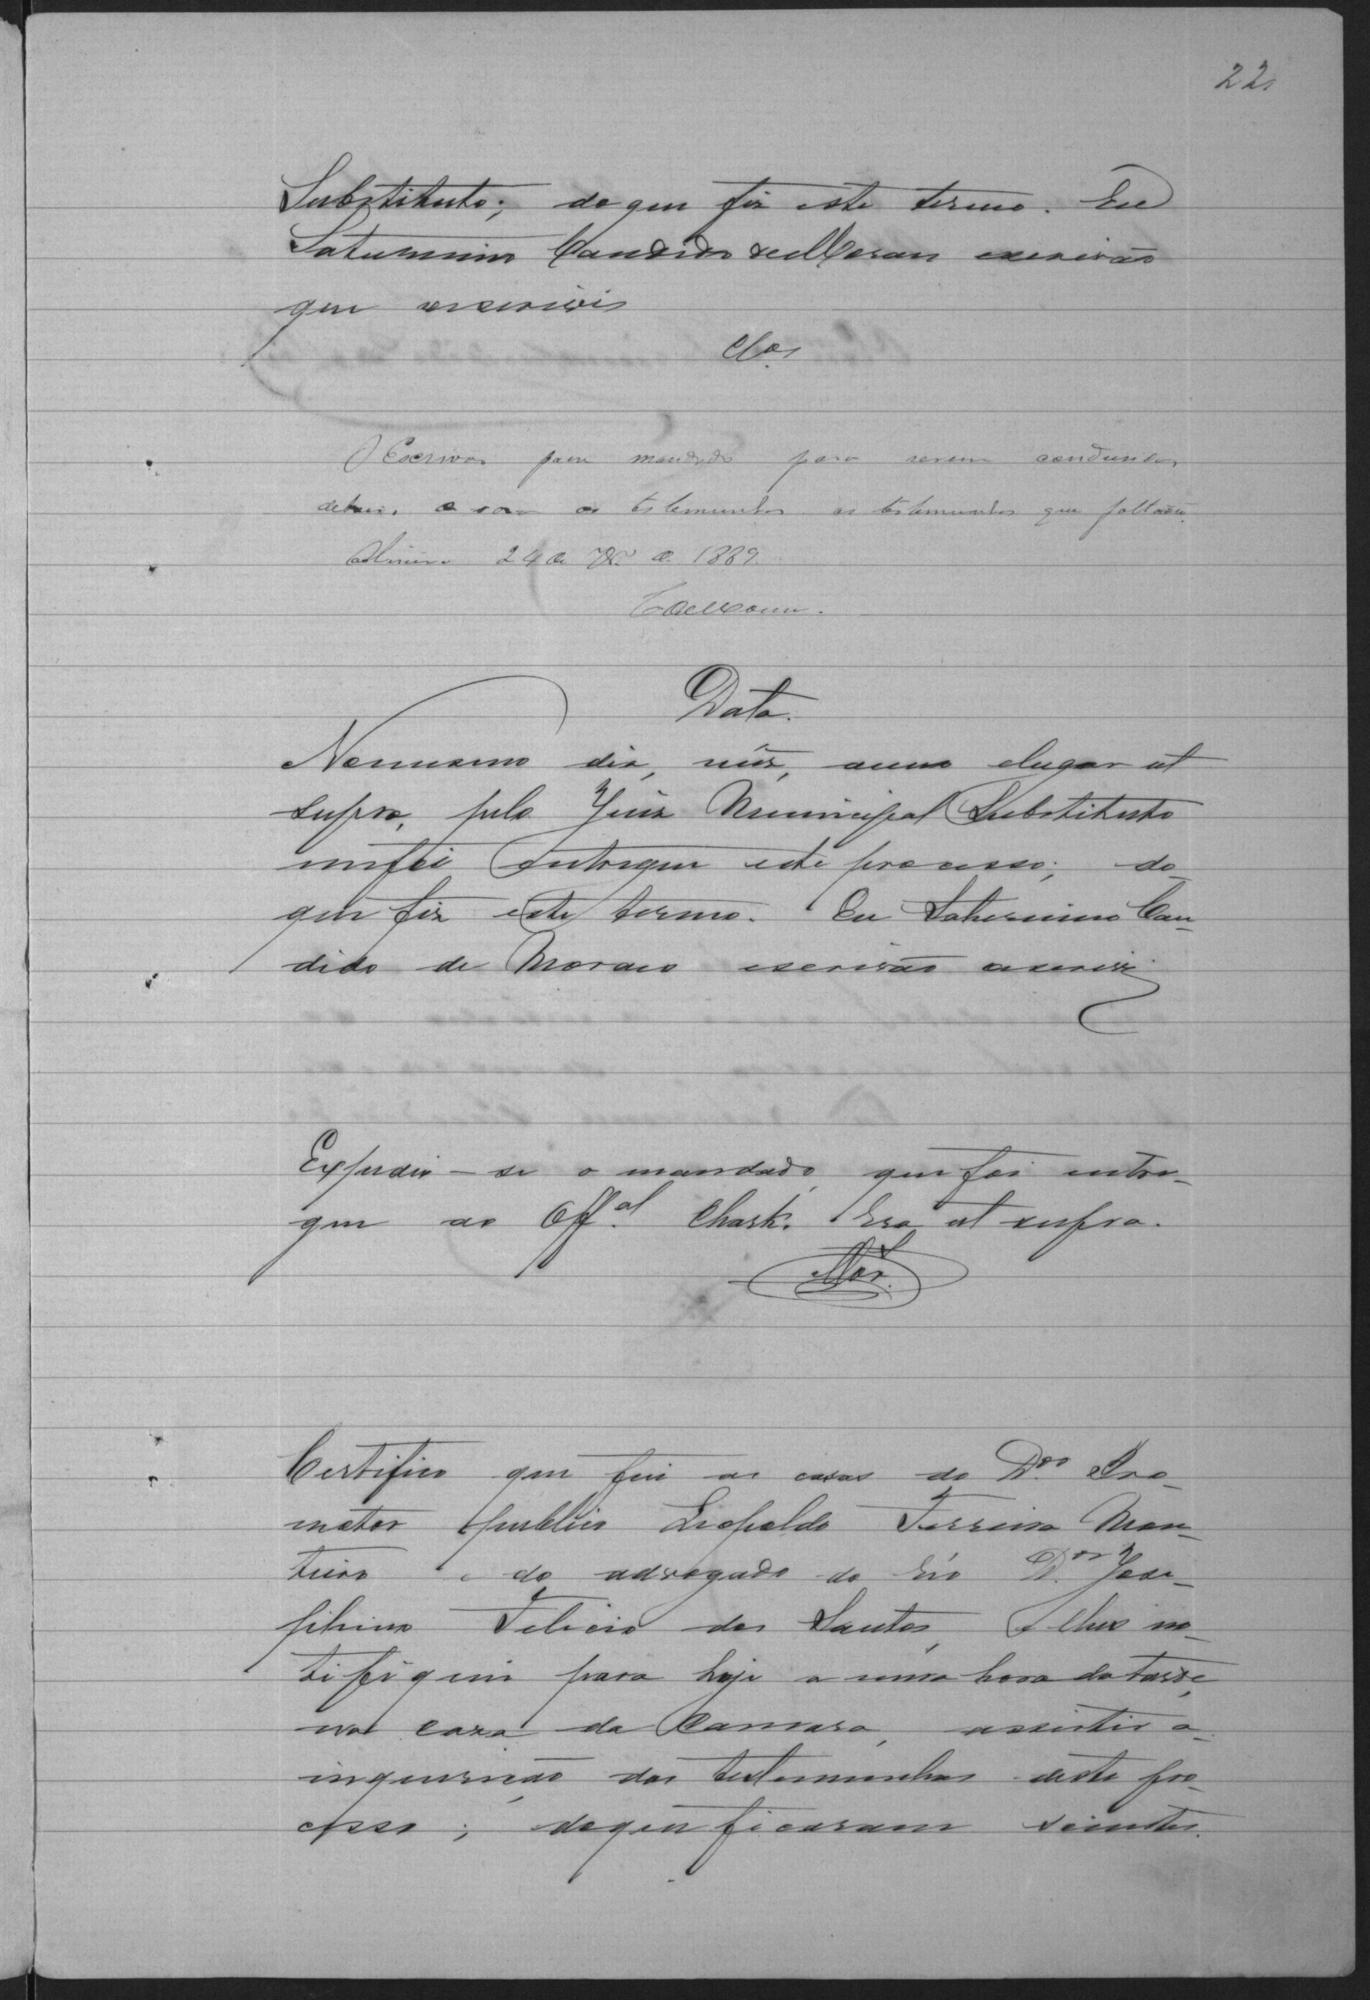 22
Substituto; do que fiz este termo. Eu
Saturnino Candido de Moraes escrivão
que escrevi
Clos
O Escrivão passe mandado para serem conduzidas
debaixo de vara as testemunhas que faltarão.
24 de de 1889.
Data.
No mesmo dia, mez, anno e lugar ut
supra, pelo Juiz Municipal Substituto
me foi entregue este processo; do
que fiz este termo. Eu Saturnino Can-
dido de Moraes escrivão escrevi
Expedio-se o mandado, que foi entre-
gue ao Offal. Era ut supra.
Mor.
Certifico que fui as casas do Dor Pro-
motor publico Leopoldo Ferreira Mon-
teiro e do advogado do réo Dor Jose-
phino Felicio dos Santos, e lhes no-
tifiquei para hoje a uma hora da tarde,
na caza da Camara, assistir a
inquirição das testemunhas deste pro-
cesso; do que ficaram scientes.